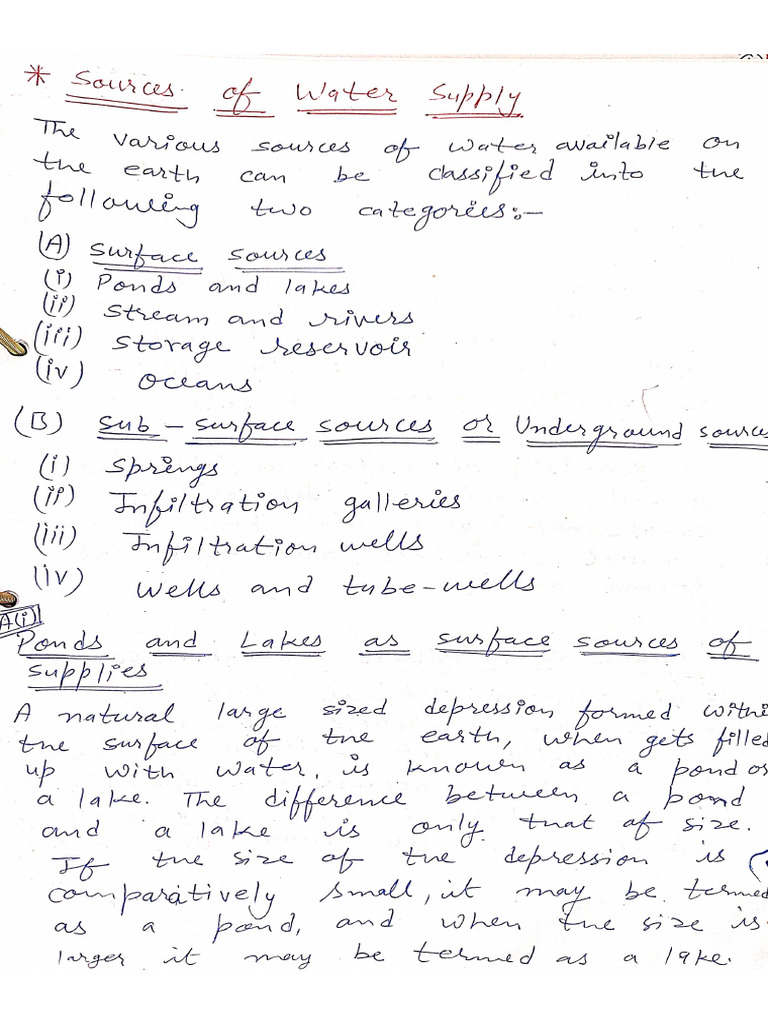 * Sources of Water Supply
The various sources of water available on
the earth can be classified into the
following two categories:-
(A) Surface sources
(i) Ponds and lakes
(ii) Stream and rivers
(iii) Storage reservoir
(iv) Oceans
(B) Sub-surface sources or Underground sources
(i) Springs
(ii) Infiltration galleries
(iii) Infiltration wells
(iv) Wells and tube-wells
A(i)
Ponds and Lakes as surface sources of
supplies
A natural large sized depression formed withi
the surface of the earth, when gets filled
up with water, is known as a pond or
a lake. The difference between a pond
and a lake is only that of size.
If the size of the depression is
comparatively small, it may be termed
as a pond, and when the size is
larger it may be termed as a lake.